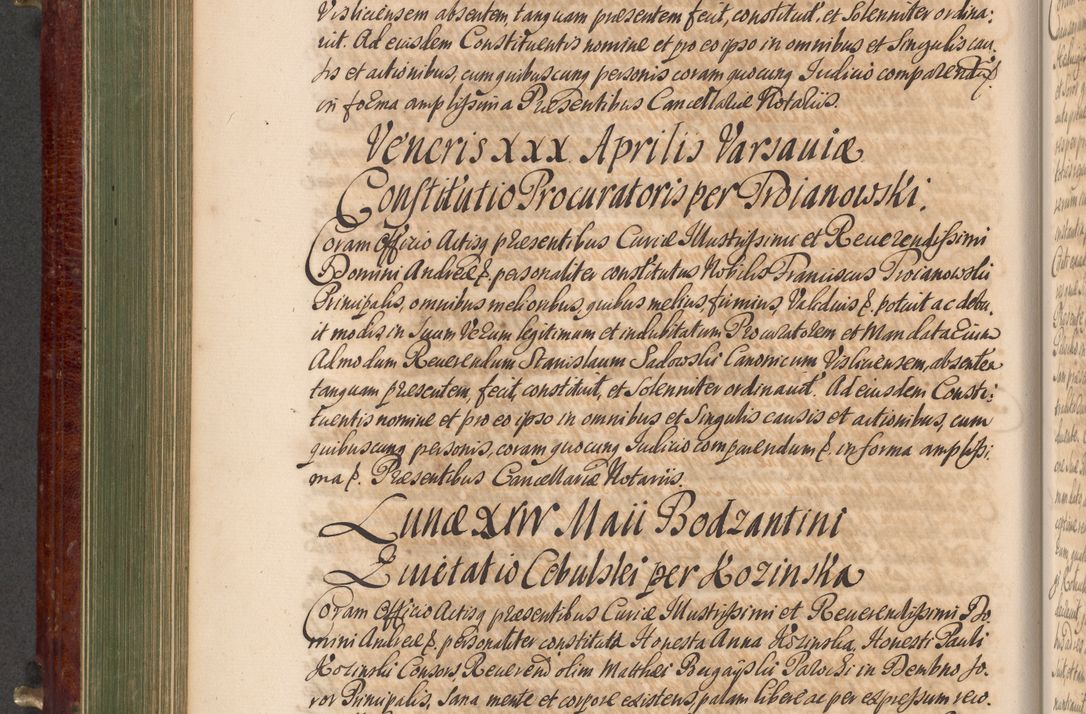 Visliciensem absentem, tanquam praesentem fecit, constituit, et Solenniter ordina:
uit. Ad eiusdem Constituentis nomine et pro eo ipso in omnibus et Singulis cau
sis et actionibus, cum quibuscunq personis coram quocunq Iudicio comparend
in forma amplissima Praesentibus Cancellariae Notariis.
Veneris XXX Aprilis Varsauiae
Constitutio Procuratoris per Troianowski.
Coram Officio Actisq praesentibus Curiae Illustrissimi et Reuerendissimi
Domini Andreae &. personaliter constitutus Nobilis Franciscus Troianowski
Principalis, omnibus melioribus, quibus melius, firmius, Validius &. potuit ac debu,
it modis in Suum Verum legitimum et indubitatum Procuratorem et Mandatarium
Admodum Reuerendum Stanislaum Sadowski Canonicum Visliciensem, absentem
tanquam praesentem, fecit, constituit, et Solenniter ordinauit. Ad eiusdem Consti:
tuentis nomine et pro eo ipso in omnibus et Singulis causis et actionibus, cum
quibuscunq personis, coram quocunq Iudicio comparendum &. in forma amplissi:
ma &. Praesentibus Cancellariae Notariis.
Lunae Maii Bodzantini
Quietatio Cebulski per Kozinska
Coram Officio Actisq praesentibus Curiae Illustrissimi et Reuerendissimi Do,
mini Andreae &. personaliter constituta Honesta Anna Kozinska, Honesti Pauli
Kozinski Consors, Reuerend olim Matthei Bugayski Parochi in Dembno So,
ror Principalis, Sana mente et corpore existens, palam libere ac per expressum reco.